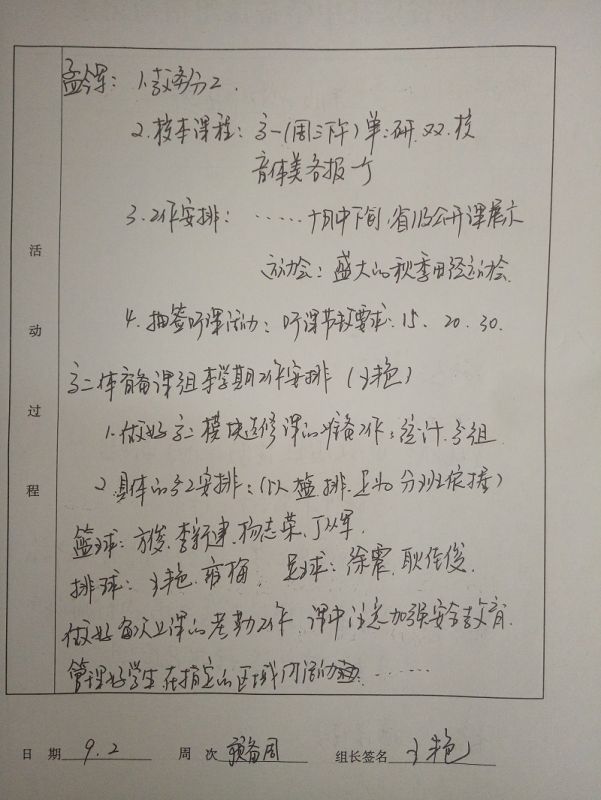 孟令军：1.教务分工.
2.校本课程：高一(周三下午)单：研.双：校
音体美各报一个
3.工作安排：……十月中下旬，省级公开课展示
运动会：盛大的秋季田径运动会
4.抽签听课活动：听课节数要求：15、20.30.
高二体育备课组本学期工作安排(王艳)
1.做好高二模块选修课的准备工作：统计.分组
2.具体的分工安排：(以篮.排.足为分班依据)
篮球：方俊.李新建.杨志荣.丁从军.
排球：王艳.雍梅. 足球：徐震.耿佳俊.
做好每次上课的考勤工作.课中注意加强安全教育.
管理好学生在指定的区域内活动……
活动过程
日 期 9.2 周 次 预备周 组长签名 王艳